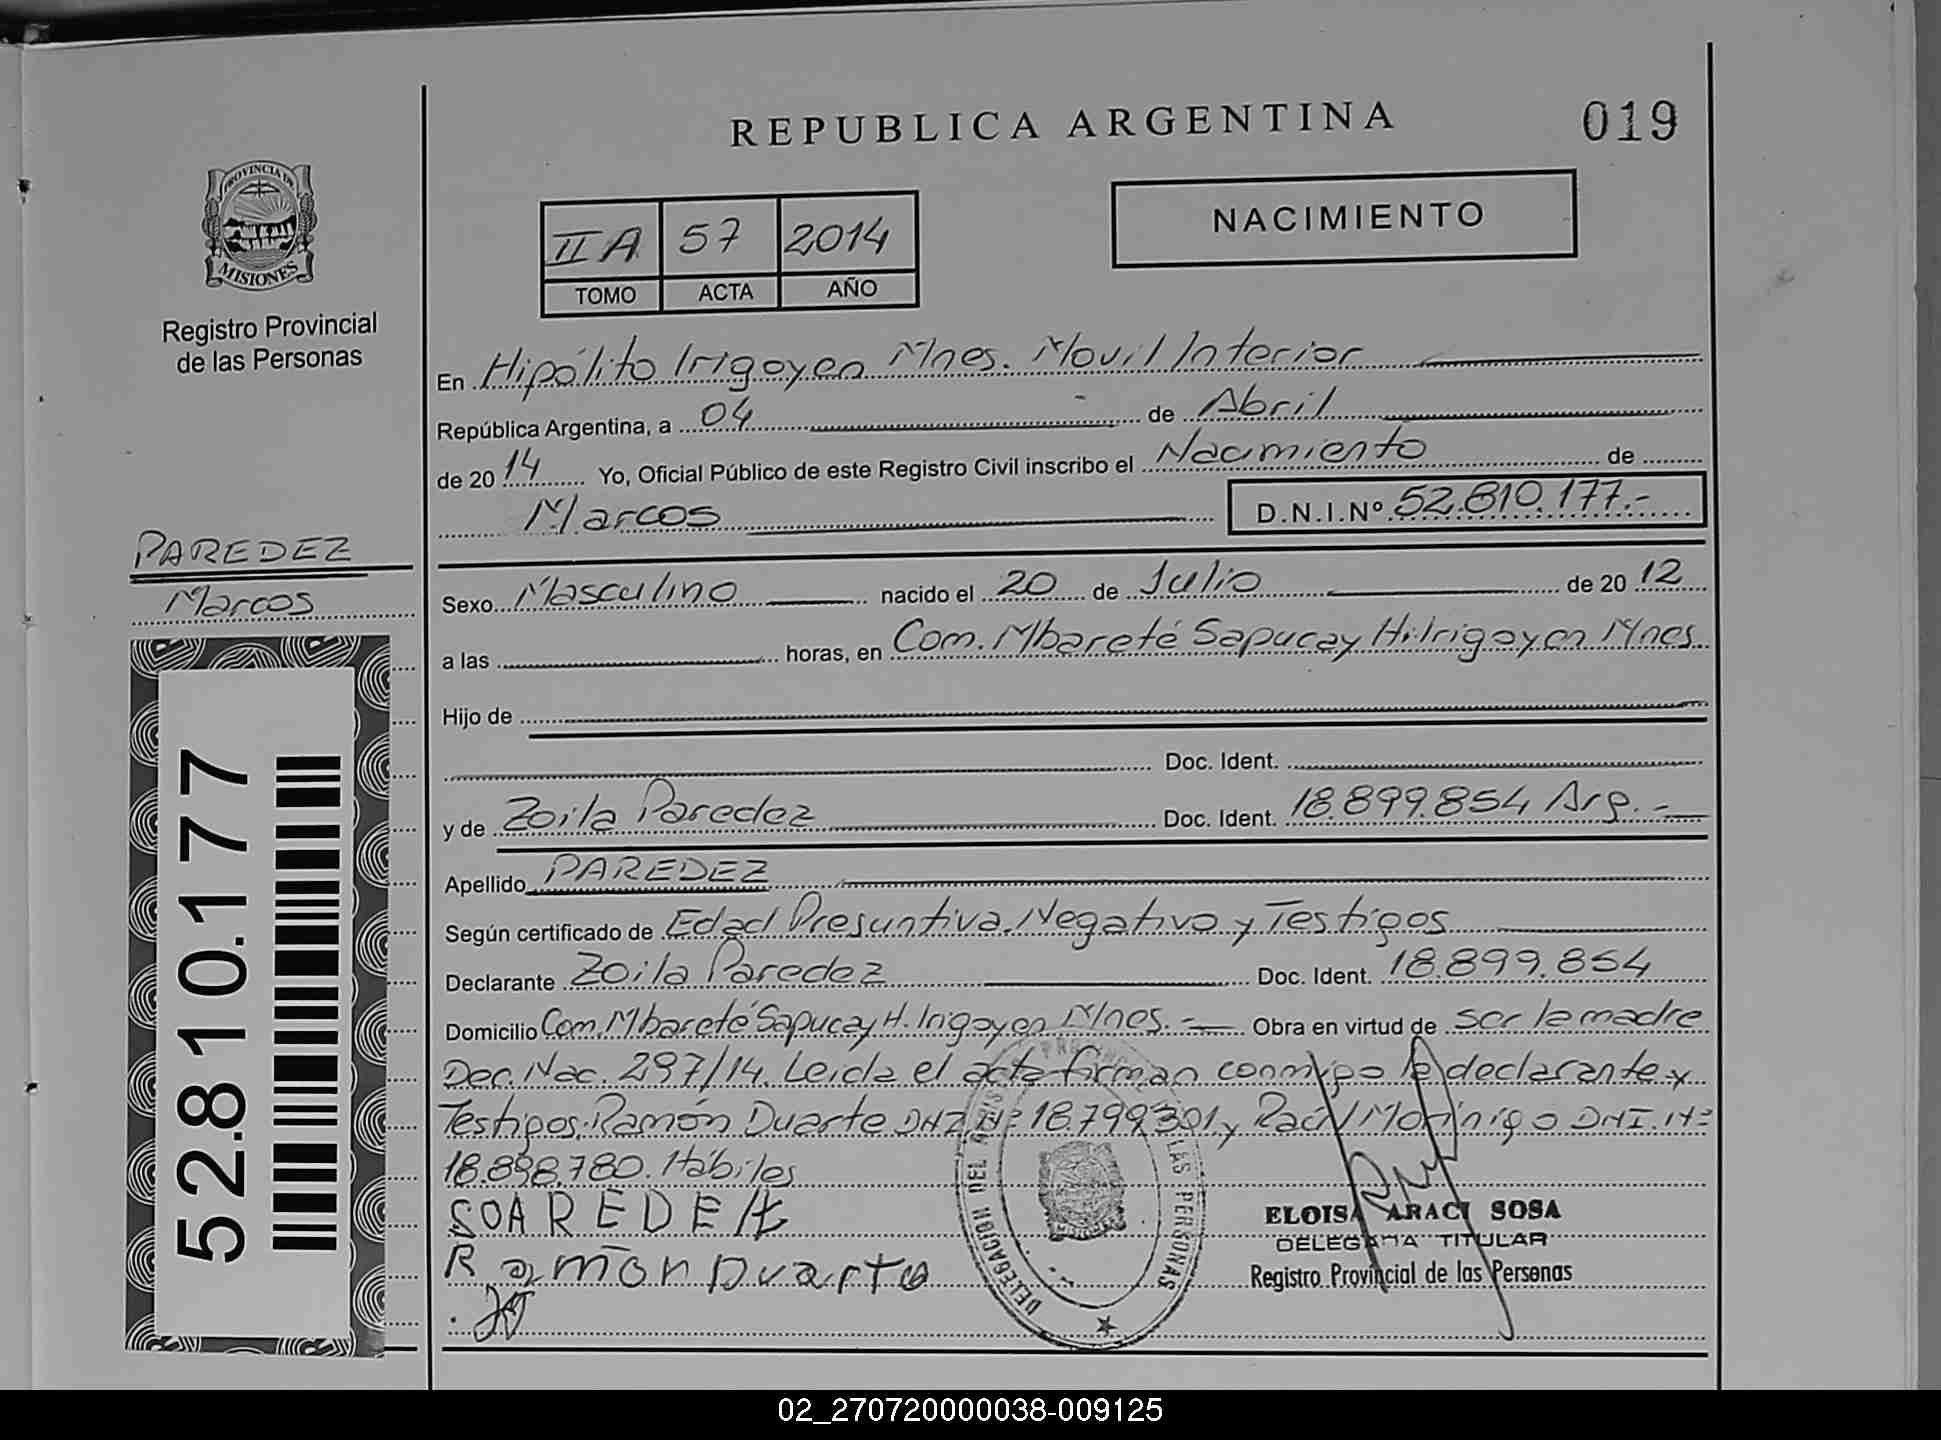 REPUBLICA ARGENTINA
019
PROVINCIA DE
MISIONES
Registro Provincial
de las Personas
II A 57 2014
TOMO ACTA AÑO
NACIMIENTO
En Hipólito Irigoyen Mnes. Movil Interior
República Argentina, a 04 de Abril
de 2014 Yo, Oficial Público de este Registro Civil inscribo el Nacimiento de
Marcos D.N.I.Nº 52.810.177.-
PAREDEZ
Marcos
52.810.177
Sexo Masculino nacido el 20 de Julio de 2012
a las horas, en Com. Mbareté Sapucay H.Irigoyen Mnes.
Hijo de
Doc. Ident.
y de Zoila Paredez Doc. Ident. 18.899.854 Arg.-
Apellido PAREDEZ
Según certificado de Edad Presuntiva, Negativo y Testigos
Declarante Zoila Paredez Doc. Ident. 18.899.854
Domicilio Com. Mbareté Sapucay H. Irigoyen Mnes.- Obra en virtud de ser la madre
Dec. Nac. 297/14. Leida el acta firman conmigo la declarante y
Testigos: Ramón Duarte DNI Nº 18.799.301 y Raúl Morínigo DNI.Nº
18.898.780. Hábiles
SOAREDE
Ramon Duarte
DELEGACION DEL
LAS PERSONAS
ELOISA ARACI SOSA
DELEGADA TITULAR
Registro Provincial de las Personas
02_270720000038-009125